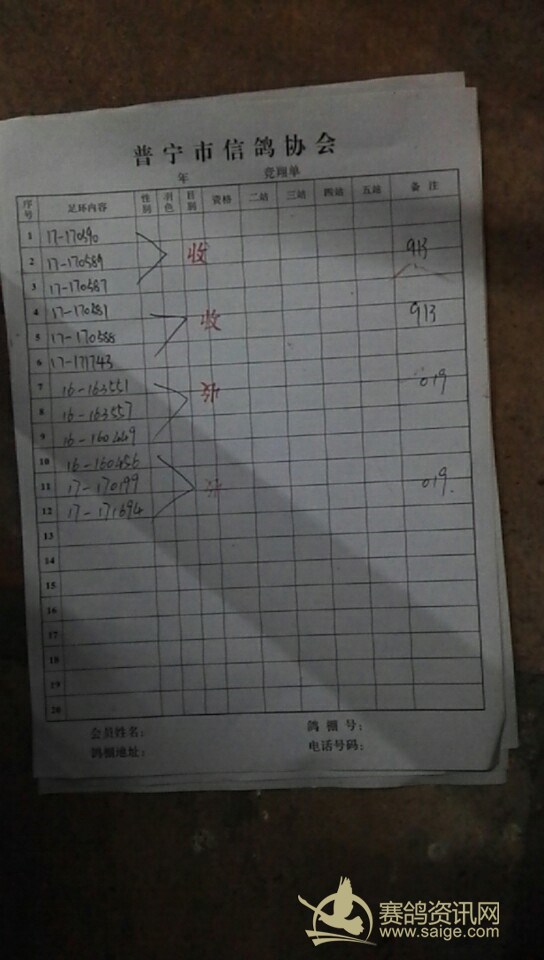 普宁市信鸽协会
年 竞翔单
序号 足环内容 性别 羽色 目别 资格 二站 三站 四站 五站 备注
1 17-170590
2 17-170589 收 913
3 17-170587
4 17-170581 收 913
5 17-170588
6 17-171743
7 16-163551 019
8 16-163557
9 16-160449
10 16-160456
11 17-170199 019.
12 17-171694
13
14
15
16
17
18
19
20
会员姓名: 鸽棚号:
鸽棚地址: 电话号码:
赛鸽资讯网
www.saige.com